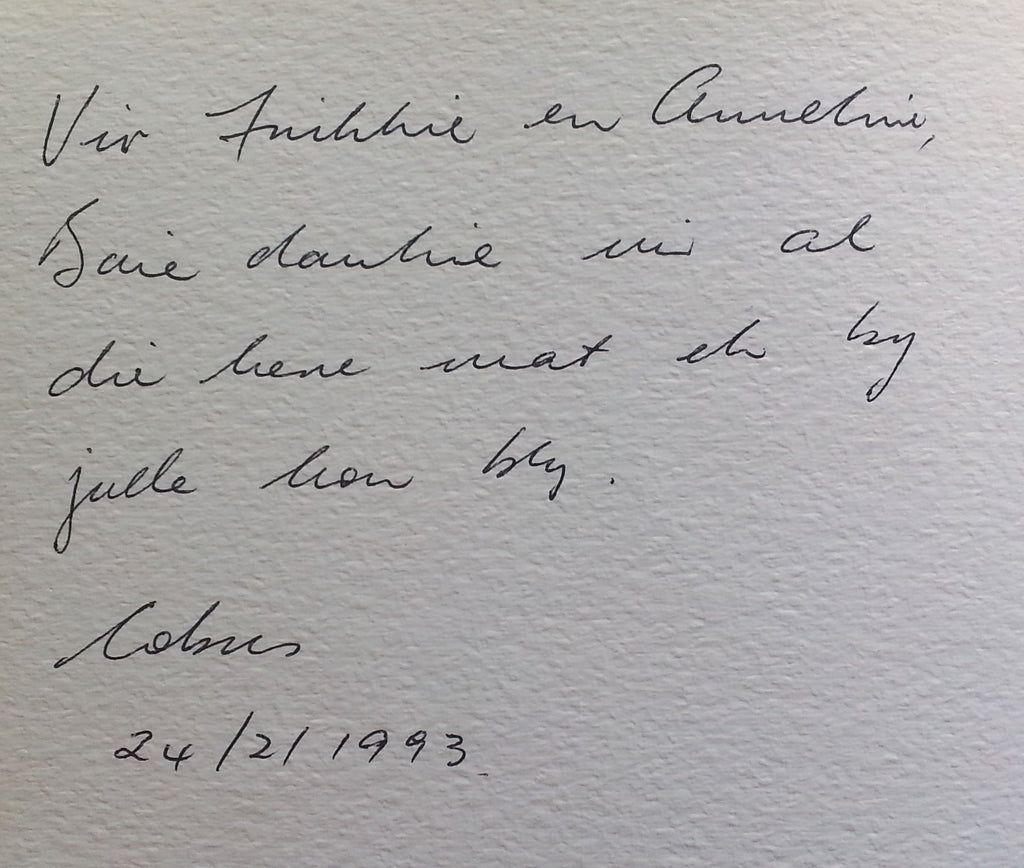 Vir Frikkie en Anneline,
Baie dankie vir al
die kere wat ek by
julle kon bly.
Cobus
24/2/1993